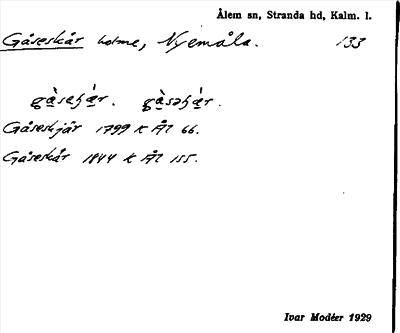 Ålem sn, Stranda hd, Kalm. l.
Gåseskär holme, Nyemåla. 133
gàsəʃæ̀r. gàsəʃæ̀r.
Gåseskjär 1799 k Ål 66.
Gåseskär 1844 k Ål 155.
Ivar Modéer 1929